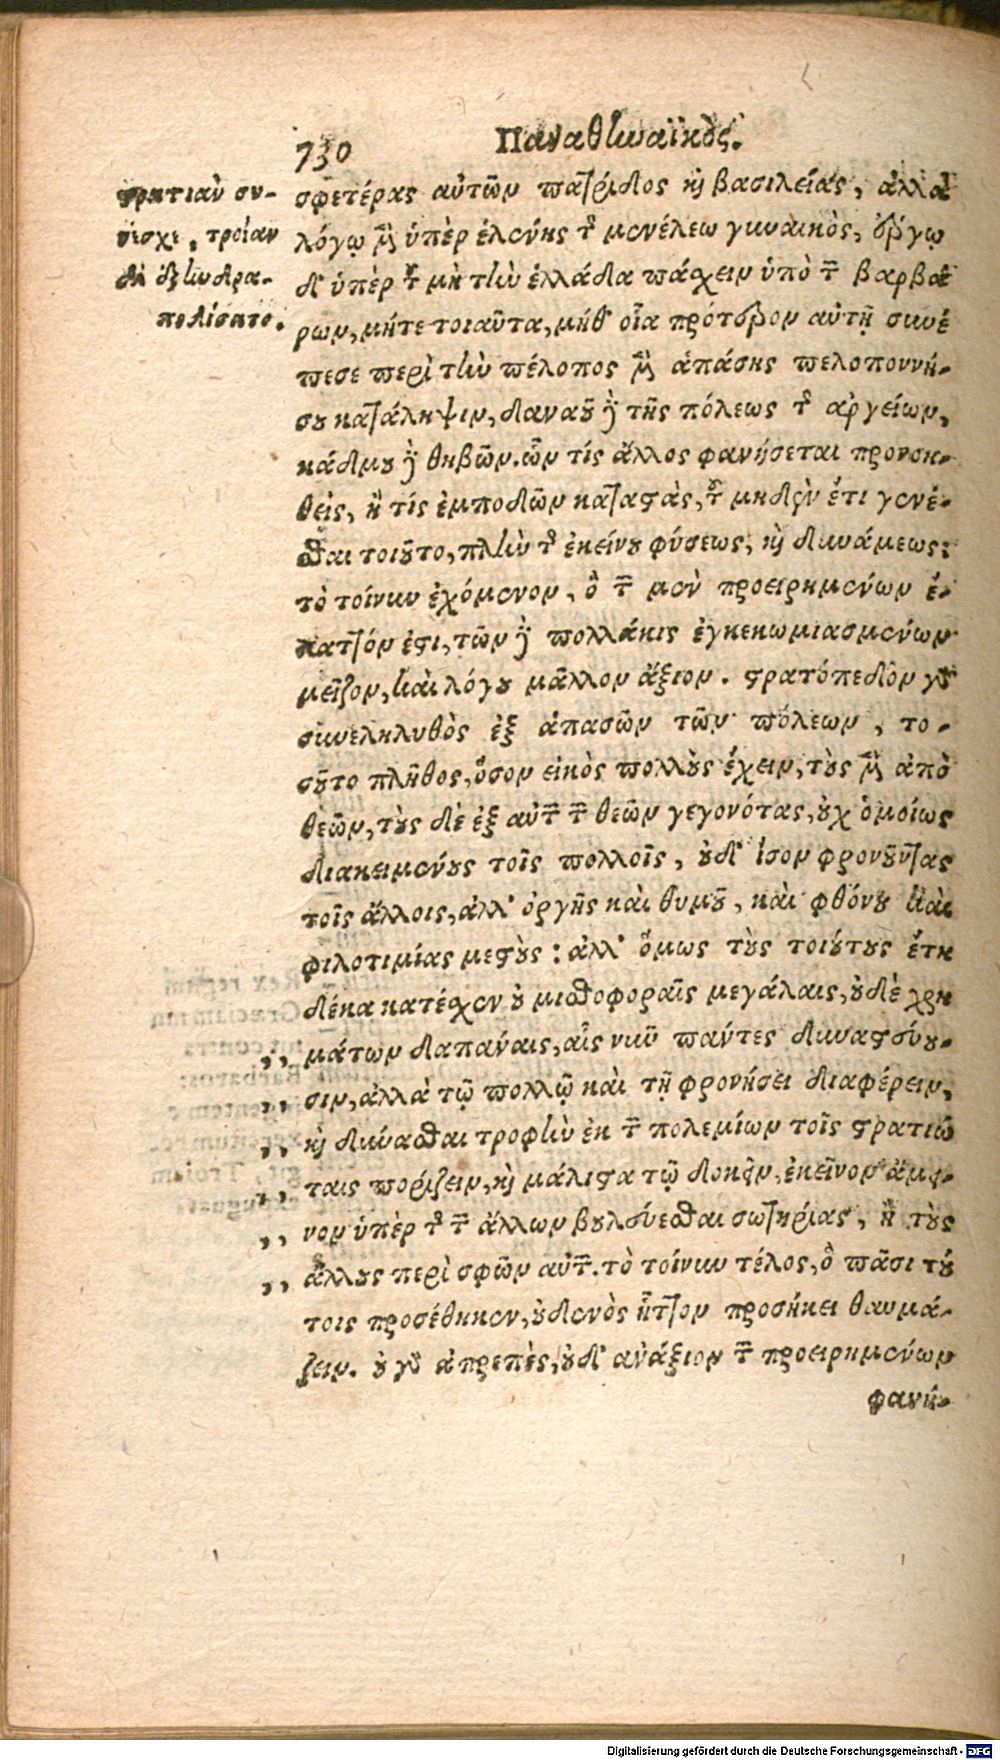 730 Παναθηναϊκός.
στρατιὰν συ-
νέσχε, τροίαν
δὲ ἐξηνδρα-
ποδίσατο.
σφετέρας αὐτῶν πατρίδος καὶ βασιλείας, ἀλλὰ
λόγῳ μὲν ὑπὲρ ἑλένης τῆς μενέλεω γυναικὸς, ἔργῳ
δ' ὑπὲρ τοῦ μὴ τὴν ἑλλάδα πάσχειν ὑπὸ τῶν βαρβά
ρων, μήτε τοιαῦτα, μήθ' οἷα πρότερον αὐτῇ συνέ
πεσε περὶ τὴν πέλοπος μὲν ἁπάσης πελοποννή-
σου κατάληψιν, δαναοῦ δὲ τῆς πόλεως τῆς ἀργείων,
κάδμου δὲ θηβῶν. ὧν τίς ἄλλος φανήσεται προνοη-
θεὶς, ἢ τίς ἐμποδὼν καταστὰς, τοῦ μηδὲν ἔτι γενέ-
σθαι τοιοῦτο, πλὴν τῆς ἐκείνου φύσεως, καὶ δυνάμεως;
τὸ τοίνυν ἐχόμενον, ὃ τῶν μὲν προειρημένων ἔ-
λαττόν ἐστι, τῶν δὲ πολλάκις ἐγκεκωμιασμένων
μεῖζον, καὶ λόγου μᾶλλον ἄξιον. στρατόπεδον γὰρ
συνεληλυθὸς ἐξ ἁπασῶν τῶν πόλεων, το-
σοῦτο πλῆθος, ὅσον εἰκὸς πολλοὺς ἔχειν, τοὺς μὲν ἀπὸ
θεῶν, τοὺς δὲ ἐξ αὐτῶν τῶν θεῶν γεγονότας, οὐχ ὁμοίως
διακειμένους τοῖς πολλοῖς, οὐδ' ἴσον φρονοῦντας
τοῖς ἄλλοις, ἀλλ' ὀργῆς καὶ θυμοῦ, καὶ φθόνου καὶ
φιλοτιμίας μεστοὺς: ἀλλ' ὅμως τοὺς τοιούτους ἔτη
δέκα κατέσχεν οὐ μισθοφοραῖς μεγάλαις, οὐδὲ χρη
,, μάτων δαπάναις, αἷς νῦν πάντες δυναστεύου-
,, σιν, ἀλλὰ τῷ πολλῷ καὶ τῇ φρονήσει διαφέρειν,
,, καὶ δύνασθαι τροφὴν ἐκ τῶν πολεμίων τοῖς στρατιώ
,, ταις πορίζειν, καὶ μάλιστα τῷ δοκεῖν, ἐκεῖνον ἄμει-
,, νον ὑπὲρ τῆς τῶν ἄλλων βουλεύεσθαι σωτηρίας, ἢ τοὺς
,, ἄλλους περὶ σφῶν αὐτῶν. τὸ τοίνυν τέλος, ὃ πᾶσι τού
τοις προσέθηκεν, οὐδενὸς ἧττον προσήκει θαυμά-
ζειν. οὐ γὰρ ἀπρεπὲς, οὐδ' ἀνάξιον τῶν προειρημένων
φανή-
Digitalisierung gefördert durch die Deutsche Forschungsgemeinschaft - DFG